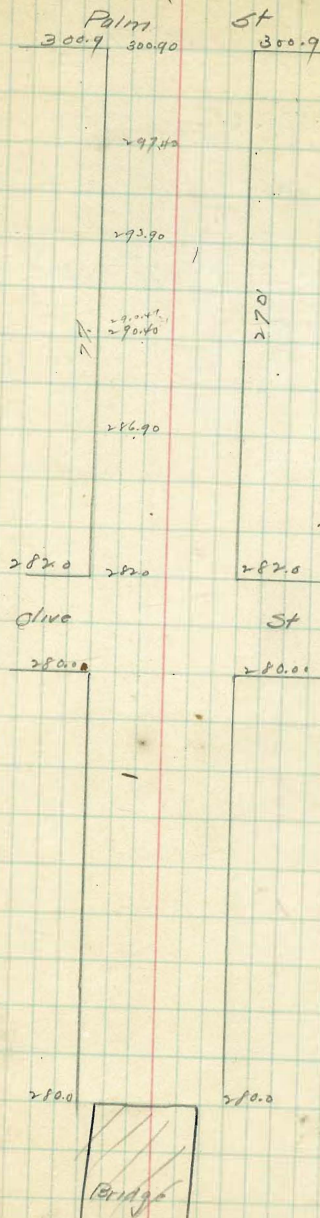 Palm St
300.9 300.90 300.9
297.40
293.90
290.40
7% 270'
286.90
282.0 282.0 282.0
Olive St
280.0 280.00
280.0 280.0
Bridge